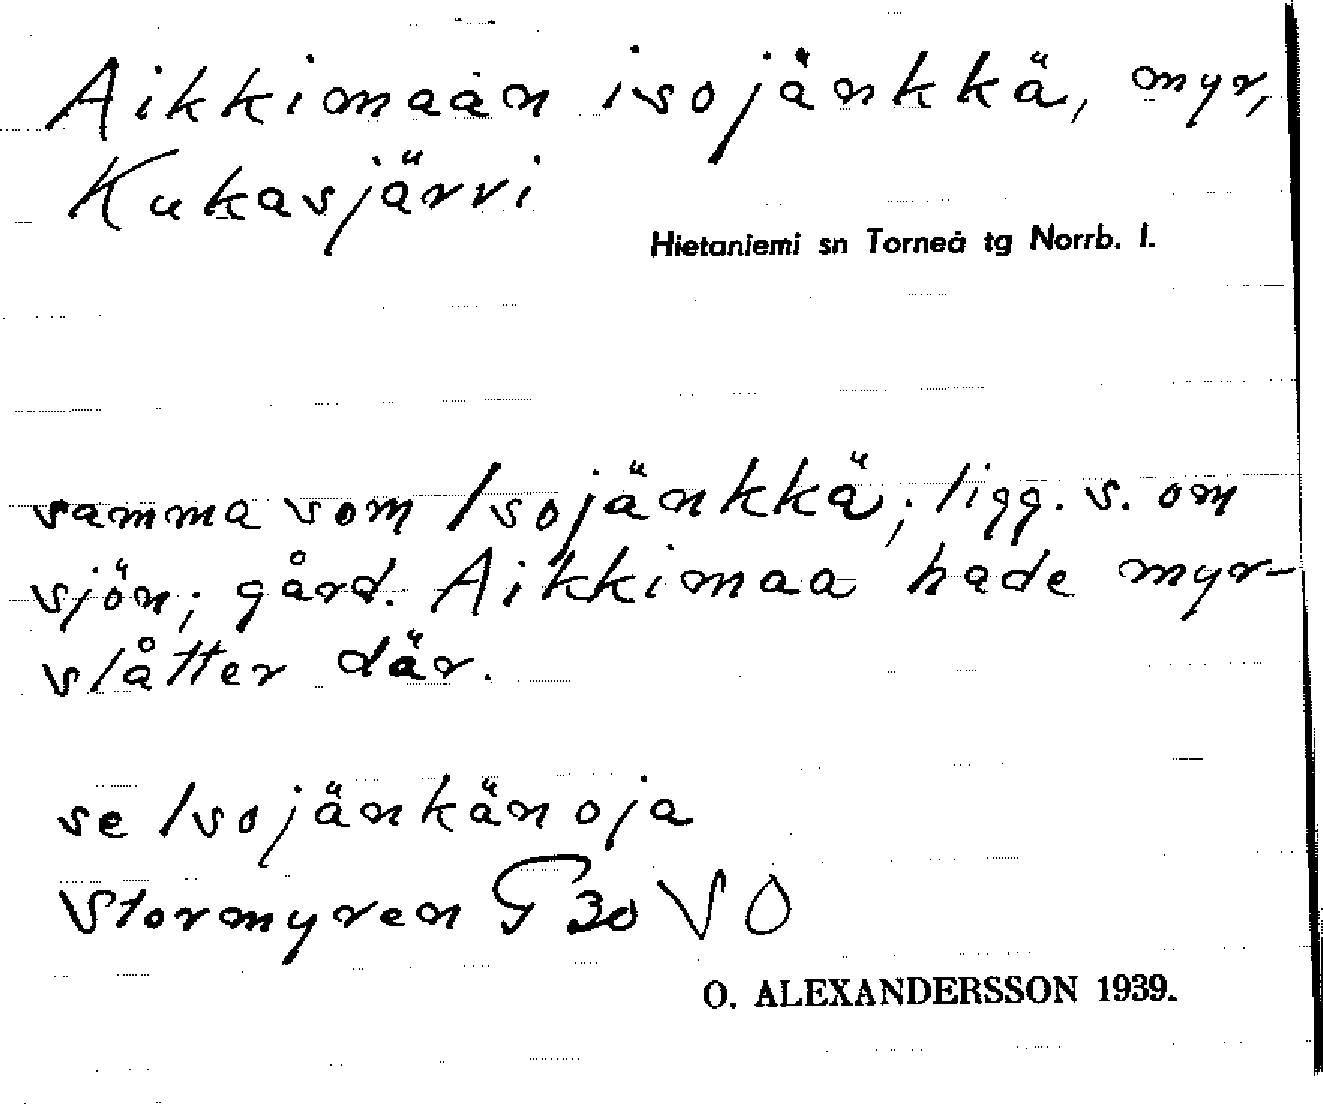 Aikkimaan isojänkkä, myr,
Kukasjärvi
Hietaniemi sn Torneå tg Norrb. l.
samma som Isojänkkä; ligg. s. om
sjön; gård. Aikkimaa hade myr-
slåtter där.
se Isojänkänoja
Stormyren G 30 SO
O. ALEXANDERSSON 1939.